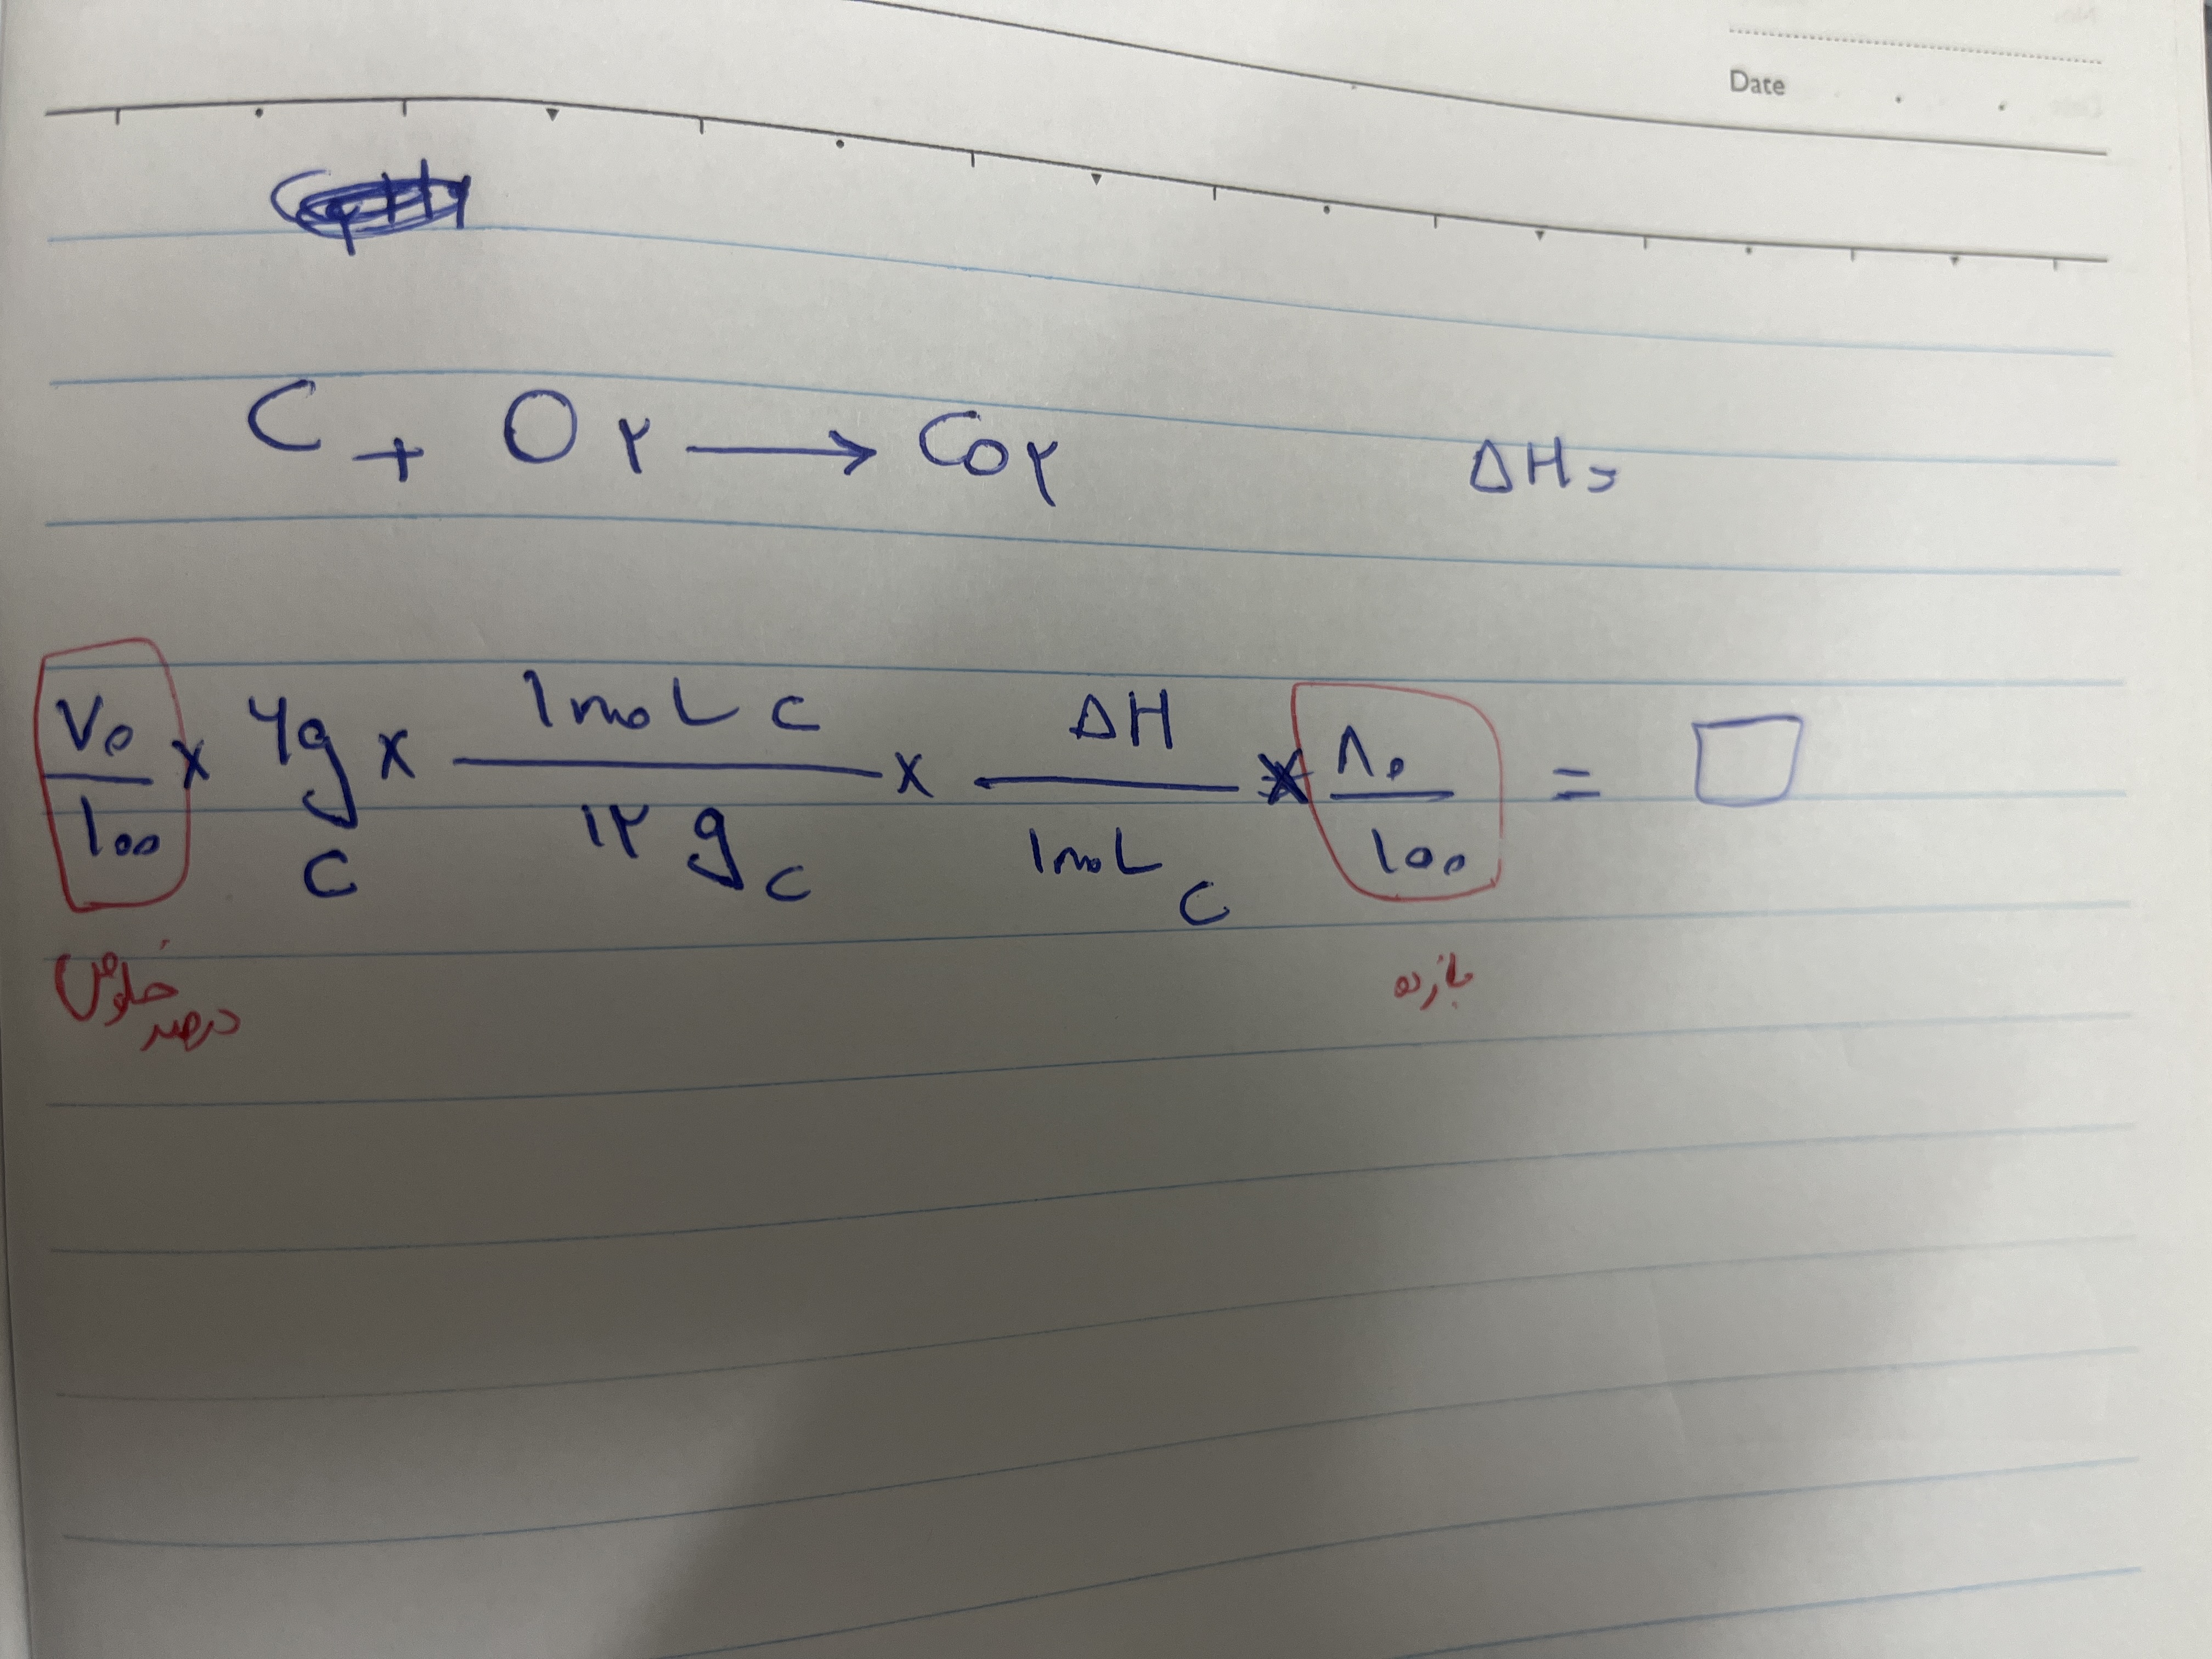 Date
C + O۲ → CO۲ ΔH =
۷۰/۱۰۰ × ۶g C × ۱mol C/۱۲g C × ΔH/۱mol C × ۸۰/۱۰۰ = □
درصد خلوص
بازده